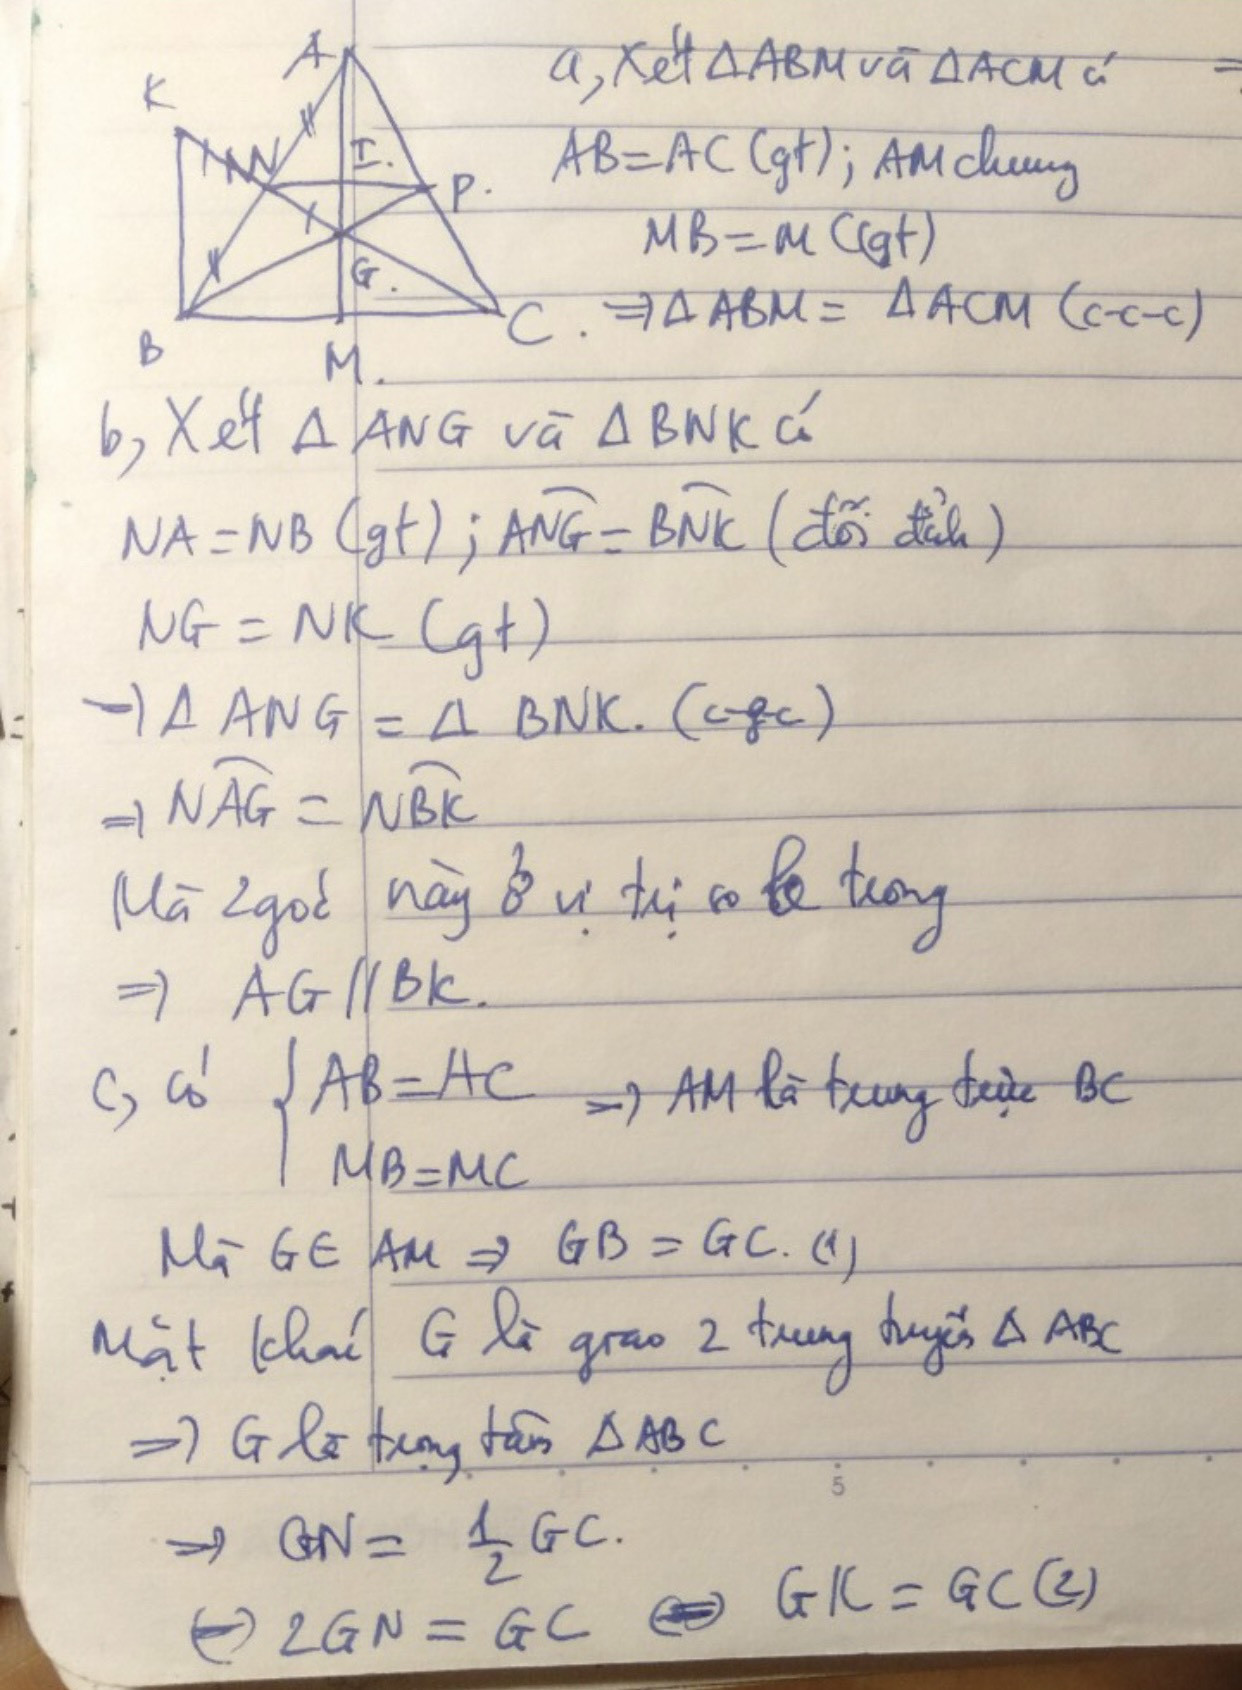 A
K
N
I.
P.
G.
B
M.
C.
a, Xét ΔABM và ΔACM có =>
AB=AC (gt); AM chung
MB=MC (gt)
=> ΔABM = ΔACM (c-c-c)
b, Xét Δ ANG và Δ BNK có
NA=NB (gt); ANG = BNK (đối đỉnh)
NG = NK (gt)
=> Δ ANG = Δ BNK. (c-g-c)
=> NAG = NBK
Mà 2 góc này ở vị trị so le trong
=> AG // BK.
c, có { AB=AC => AM là trung trực BC
MB=MC
Mà G ∈ AM => GB = GC. (1)
Mặt khác G là giao 2 trung tuyến Δ ABC
=> G là trọng tâm Δ ABC
5
=> GN = 1/2 GC.
<=> 2GN = GC <=> GK = GC (2)